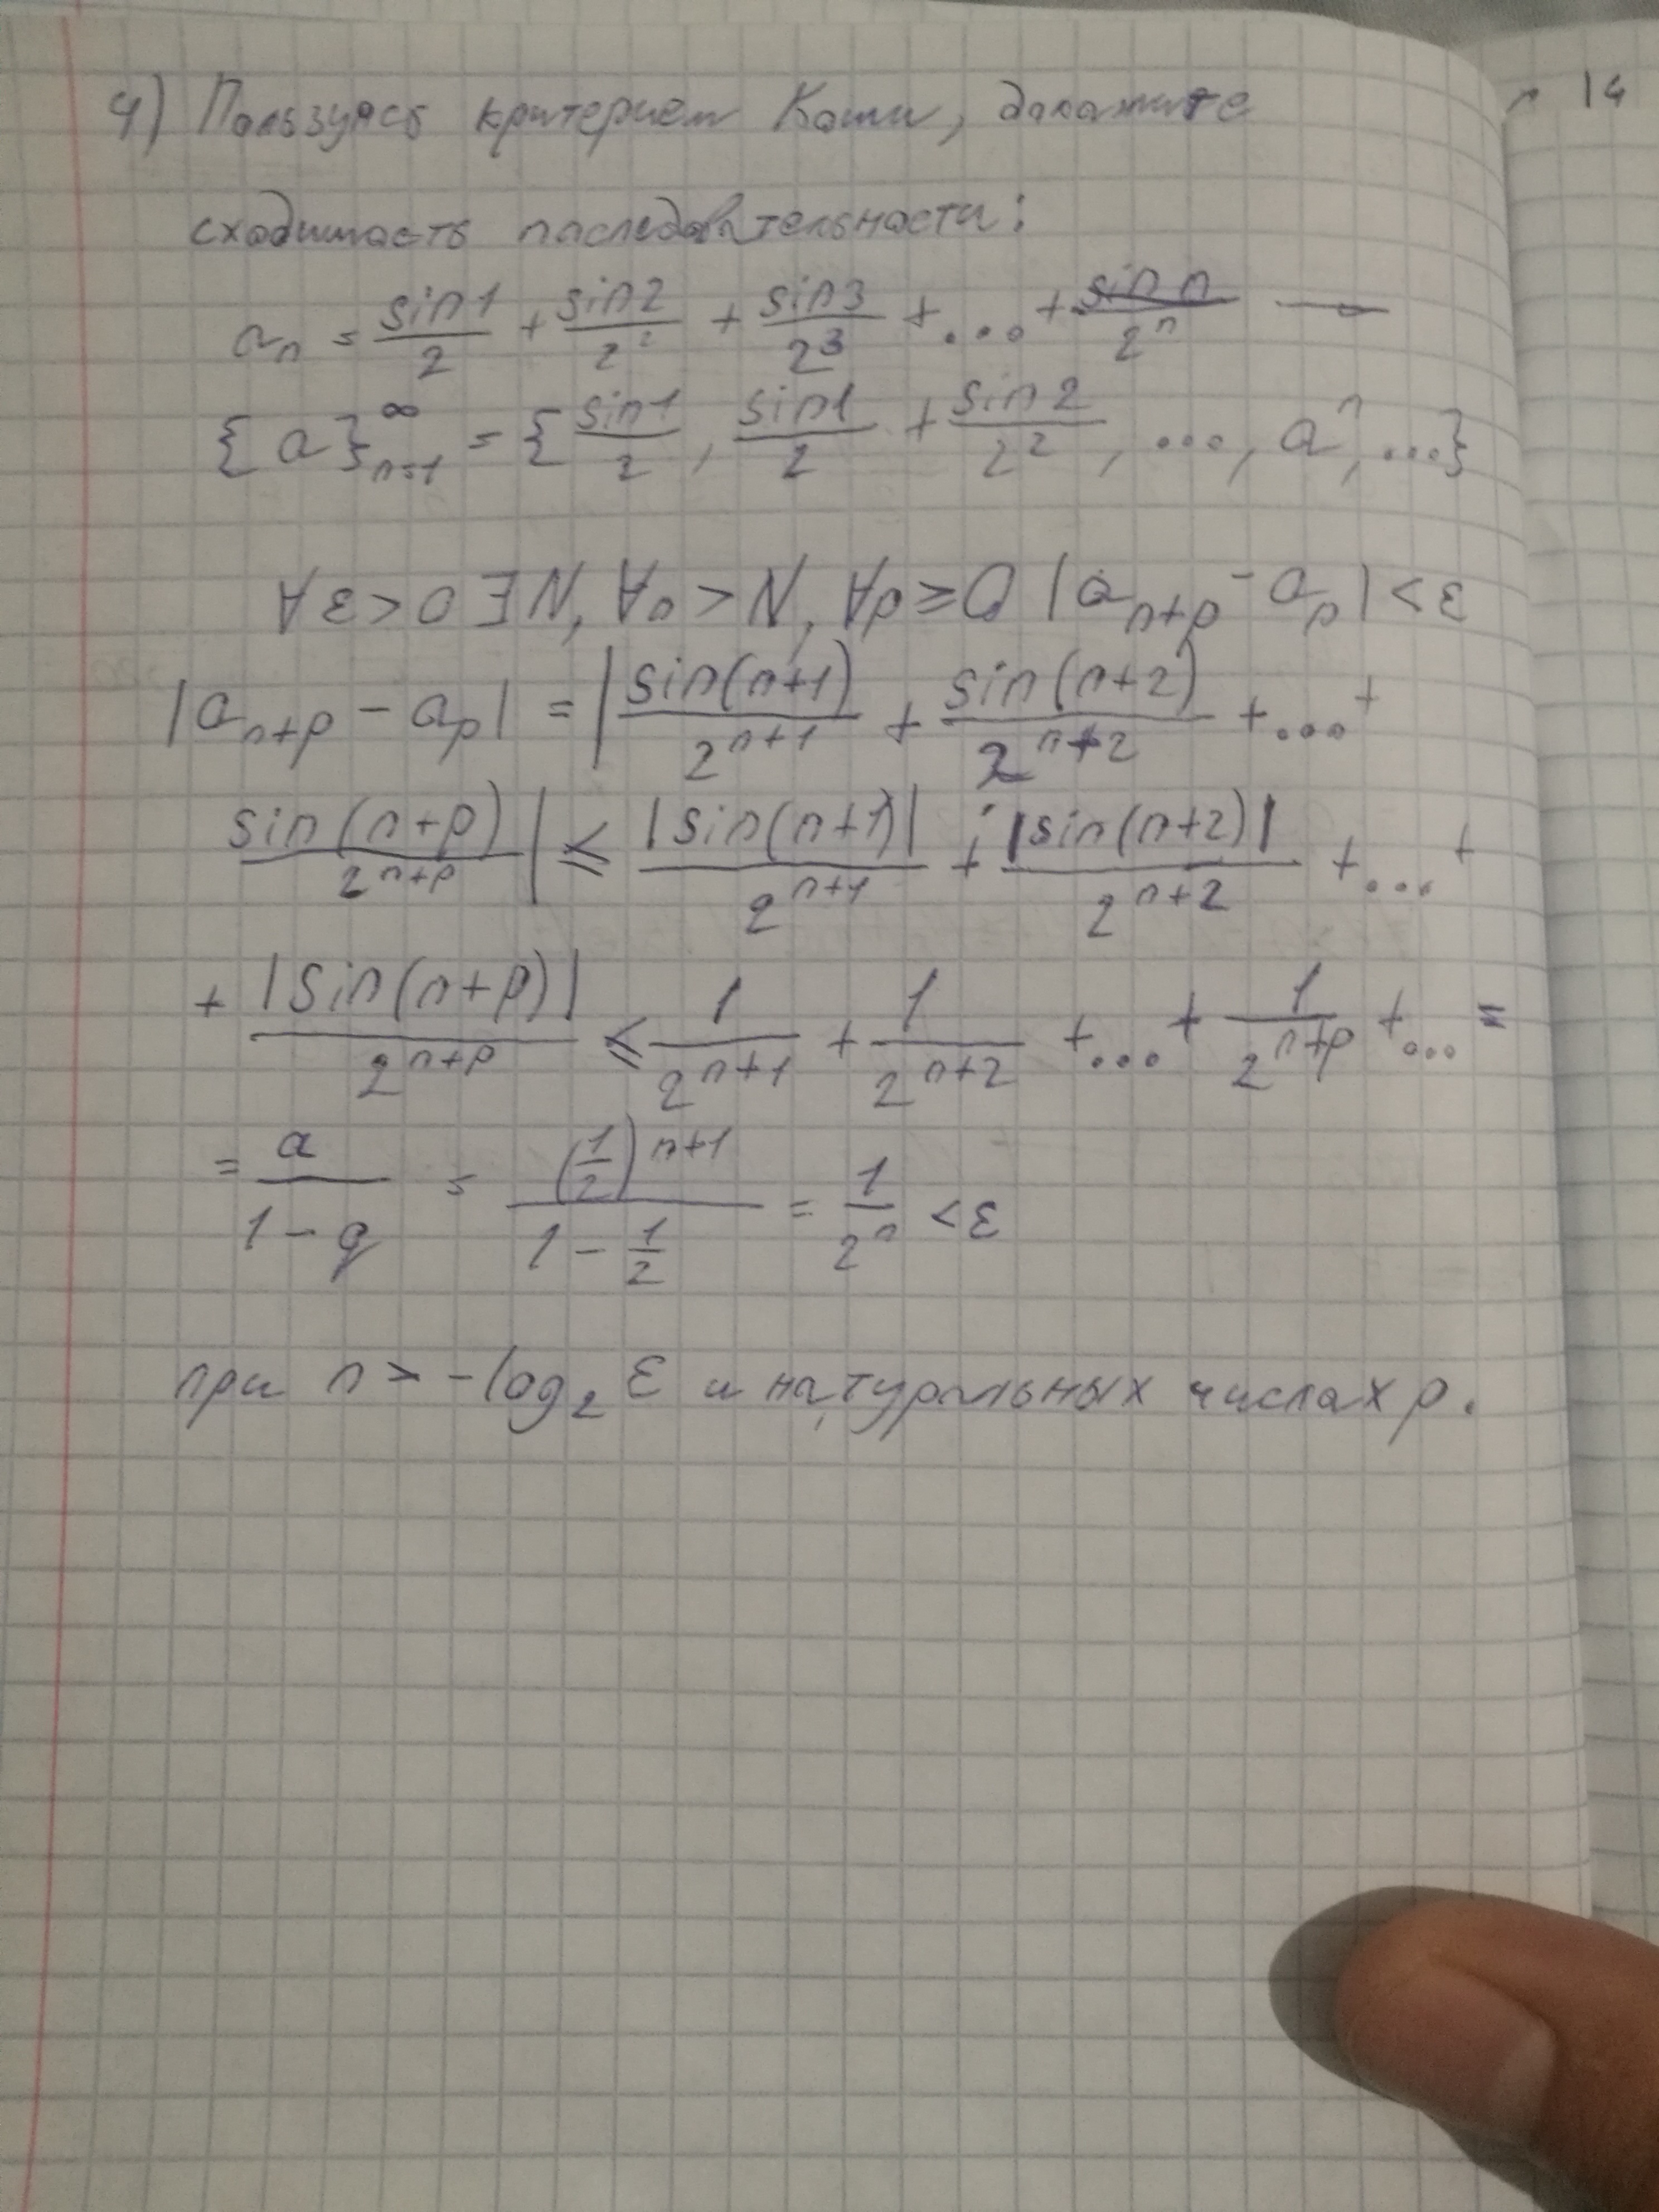 4) Пользуясь критерием Коши, докажите
сходимость последовательности:
aₙ = sin1/2 + sin2/2² + sin3/2³ + ... + sin n/2ⁿ —
{a}ₙ₌₁^∞ = {sin1/2, sin1/2 + sin2/2², ..., aⁿ, ...}
∀ε>0 ∃N, ∀n>N, ∀p≥0 |aₙ₊ₚ - aₚ| < ε
|aₙ₊ₚ - aₚ| = |sin(n+1)/2ⁿ⁺¹ + sin(n+2)/2ⁿ⁺² + ... +
sin(n+p)/2ⁿ⁺ᵖ| ≤ |sin(n+1)|/2ⁿ⁺¹ + |sin(n+2)|/2ⁿ⁺² + ... +
+ |sin(n+p)|/2ⁿ⁺ᵖ ≤ 1/2ⁿ⁺¹ + 1/2ⁿ⁺² + ... + 1/2ⁿ⁺ᵖ + ... =
= a/(1-q) = (1/2)ⁿ⁺¹/(1 - 1/2) = 1/2ⁿ < ε
при n > -log₂ ε и натуральных числах p.
14